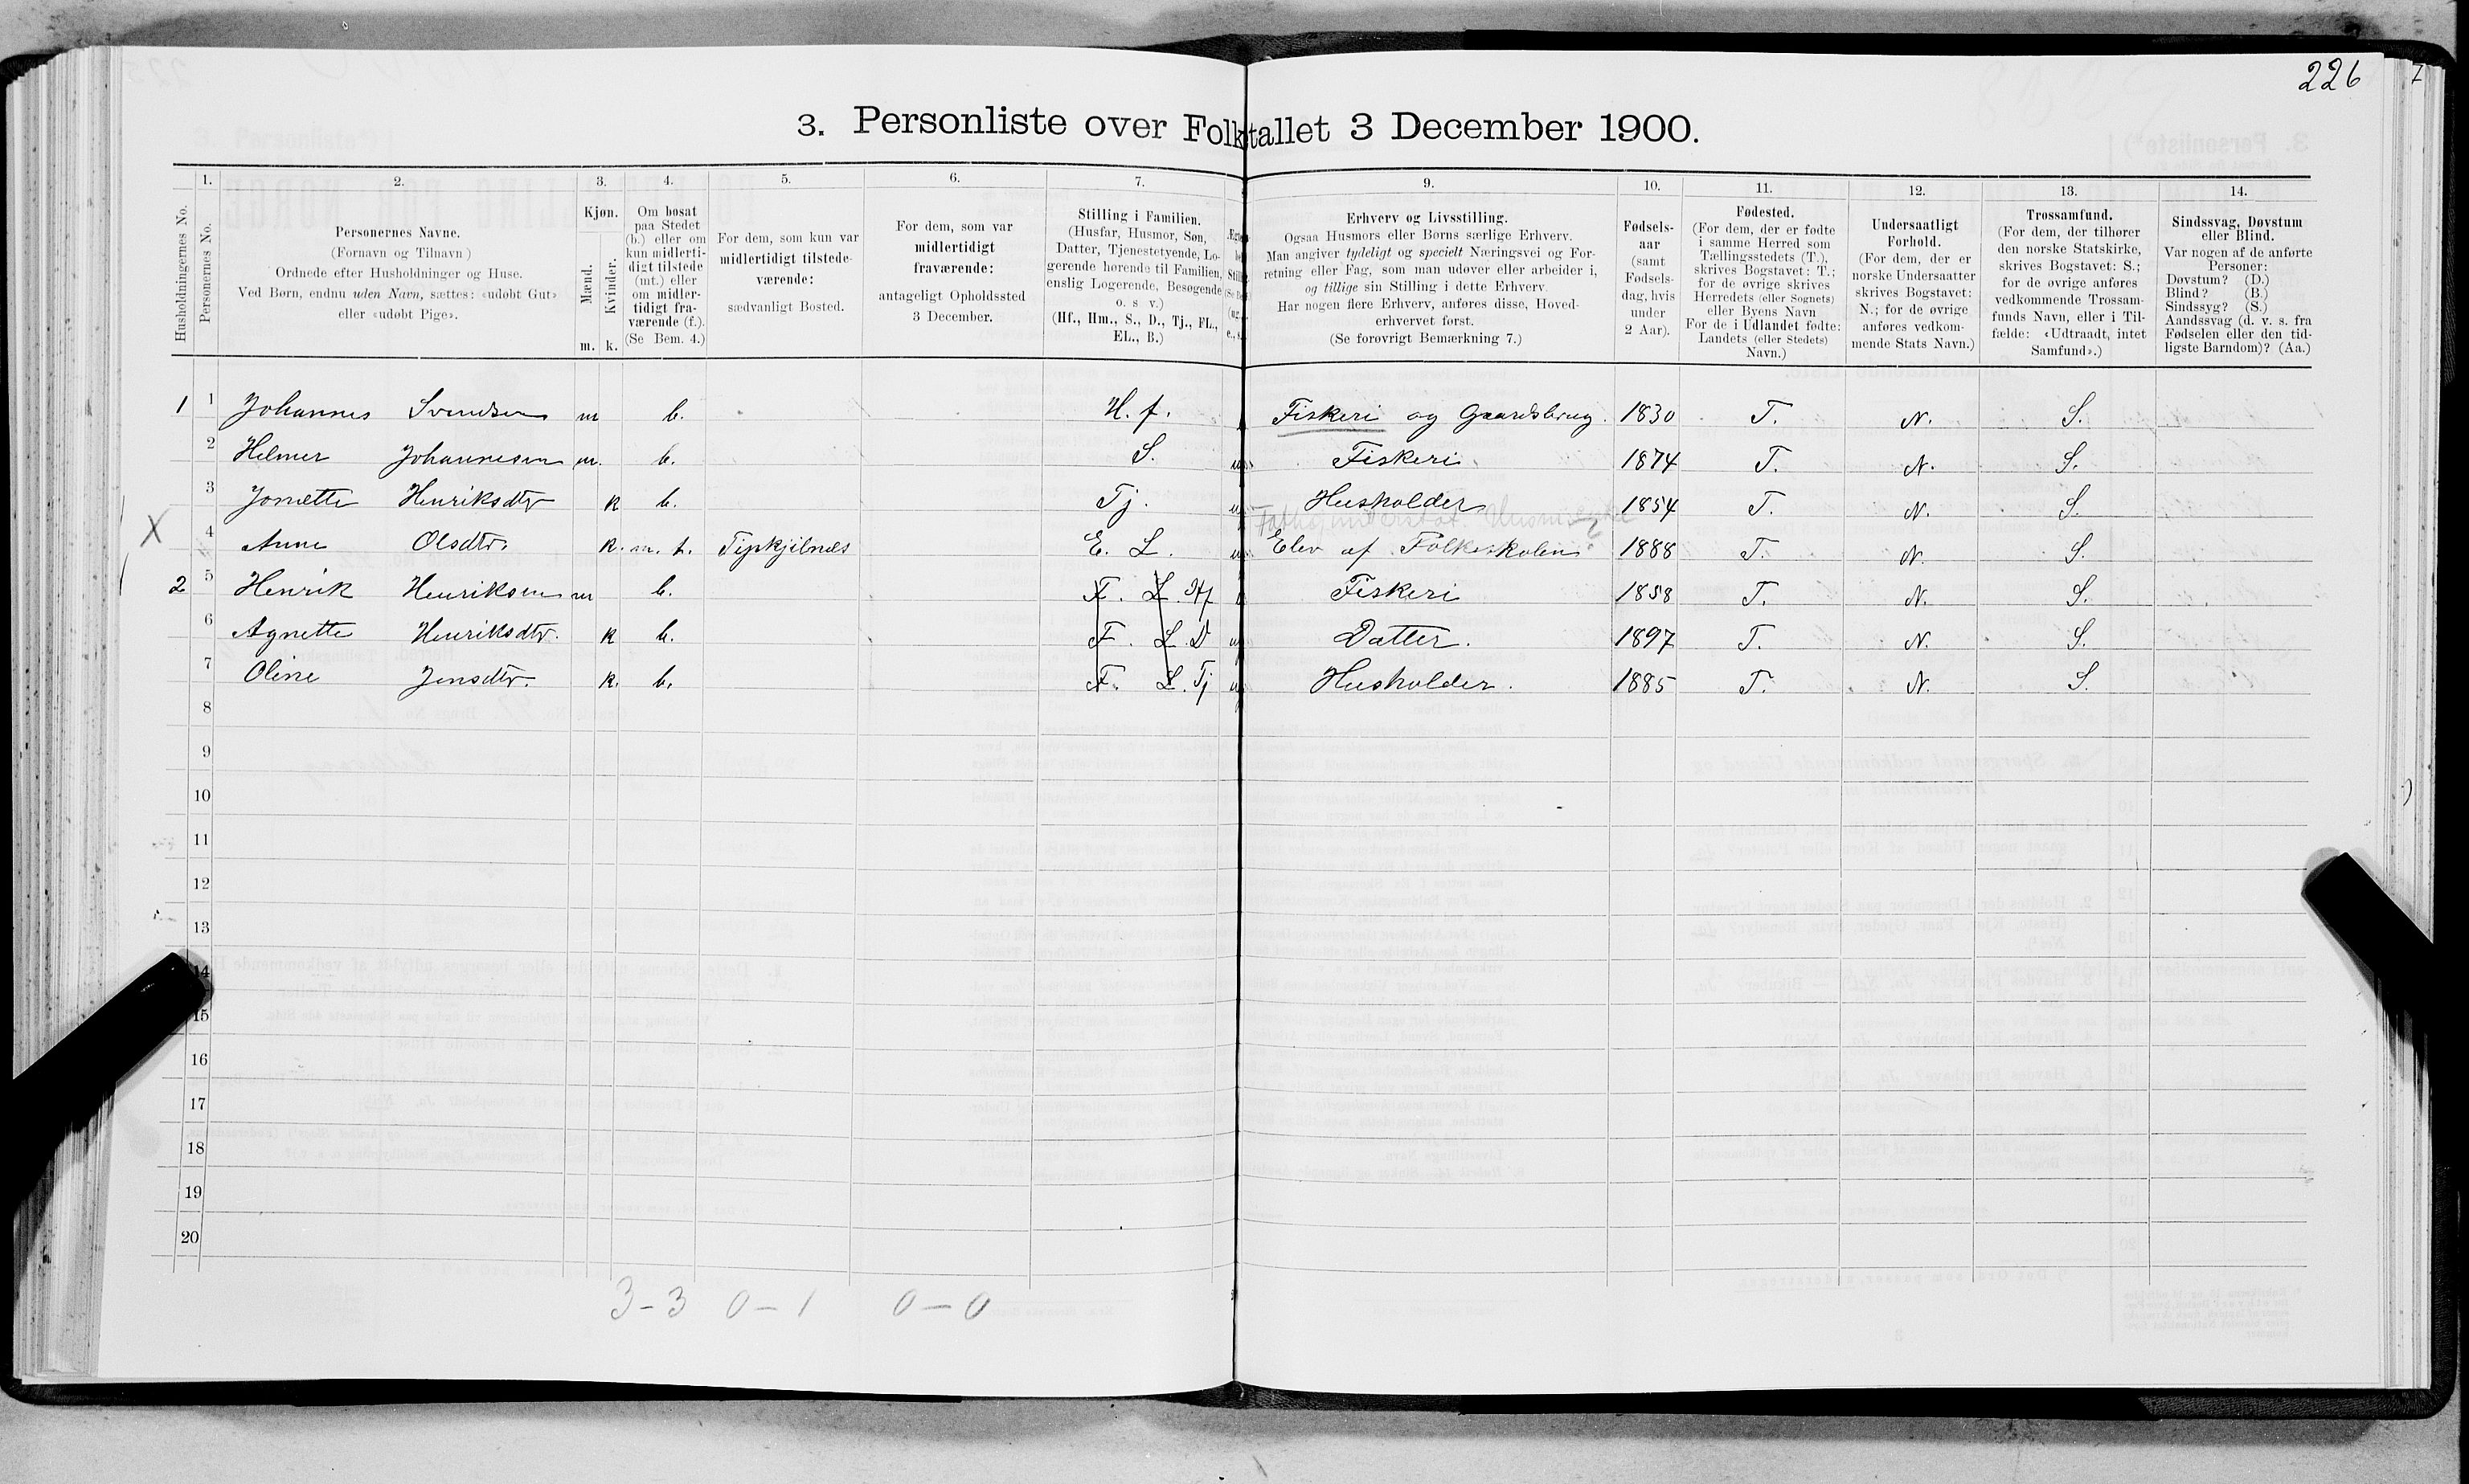 226
3. Personliste over Folketallet 3 December 1900.
Husholdningernes No.
1.
Personernes No.
2.
Personernes Navne.
(Fornavn og Tilnavn)
Ordnede efter Husholdninger og Huse.
Ved Børn, endnu uden Navn, sættes: «udøbt Gut»
eller «udøbt Pige».
3.
Kjøn.
Mænd.
Kvinder.
m. k.
4.
Om bosat
paa Stedet
(b.) eller om
kun midlerti-
digt tilstede
(mt.) eller
om midler-
tidigt fra-
værende (f.).
(Se Bem. 4.)
5.
For dem, som kun var
midlertidigt tilstede-
værende:
sædvanligt Bosted.
6.
For dem, som var
midlertidigt
fraværende:
antageligt Opholdssted
3 December.
7.
Stilling i Familien.
(Husfar, Husmor, Søn,
Datter, Tjenestetyende, Lo-
gerende hørende til Familien,
enslig Logerende, Besøgende
o. s v.)
(Hf., Hm., S., D., Tj., FL.,
EL., B.)
9.
Erhverv og Livsstilling.
Ogsaa Husmors eller Børns særlige Erhverv.
Man angiver tydeligt og specielt Næringsvei og For-
retning eller Fag, som man udøver eller arbeider i,
og tillige sin Stilling i dette Erhverv.
Har nogen flere Erhverv, anføres disse, Hoved-
erhvervet først.
(Se forøvrigt Bemærkning 7.)
10.
Fødsels-
aar
(samt
Fødsels-
dag, hvis
under
2 Aar).
11.
Fødested.
(For dem, der er fødte
i samme Herred som
Tællingsstedets (T.),
skrives Bogstavet: T.;
for de øvrige skrives
Herredets (eller Sognets)
eller Byens Navn
For de i Udlandet fødte:
Landets (eller Stedets)
Navn.)
12.
Undersaatligt
Forhold.
(For dem, der er
norske Undersaatter
skrives Bogstavet:
N.; for de øvrige
anføres vedkom-
mende Stats Navn.)
13.
Trossamfund.
(For dem, der tilhører
den norske Statskirke,
skrives Bogstavet: S.;
for de øvrige anføres
vedkommende Trossam-
funds Navn, eller i Til-
fælde: «Udtraadt, intet
Samfund».)
14.
Sindssvag, Døvstum
eller Blind.
Var nogen af de anførte
Personer:
Døvstum? (D.)
Blind? (B.)
Sindssyg? (S.)
Aandssvag (d. v. s. fra
Fødselen eller den tid-
ligste Barndom)? (Aa.)
1 1 Johannes Svendsen m b. H. f. Fiskeri og Gaardsbrug. 1830 T. N. S.
2 Helmer Johannesen m. b. S. u Fiskeri 1874 T. N. S.
3 Jonette Henriksdtr k b. Tj. u Husholder 1854 T. N. S.
X 4 Anne Olsdtr. k. m. t. E. L. u Elev af Folkeskolen 1888 T. N. S.
2 5 Henrik Henriksen m b. F. L. Hf Fiskeri 1858 T. N. S.
6 Agnette Henriksdtr. k b. F. L. D u Datter. 1897 T. N. S.
7 Oline Jensdtr. k. b. F. L. Tj u Husholder. 1885 T. N. S.
8
9
10
11
12
13
14
15
16
17
18
19
20
3-3 0-1 0-0